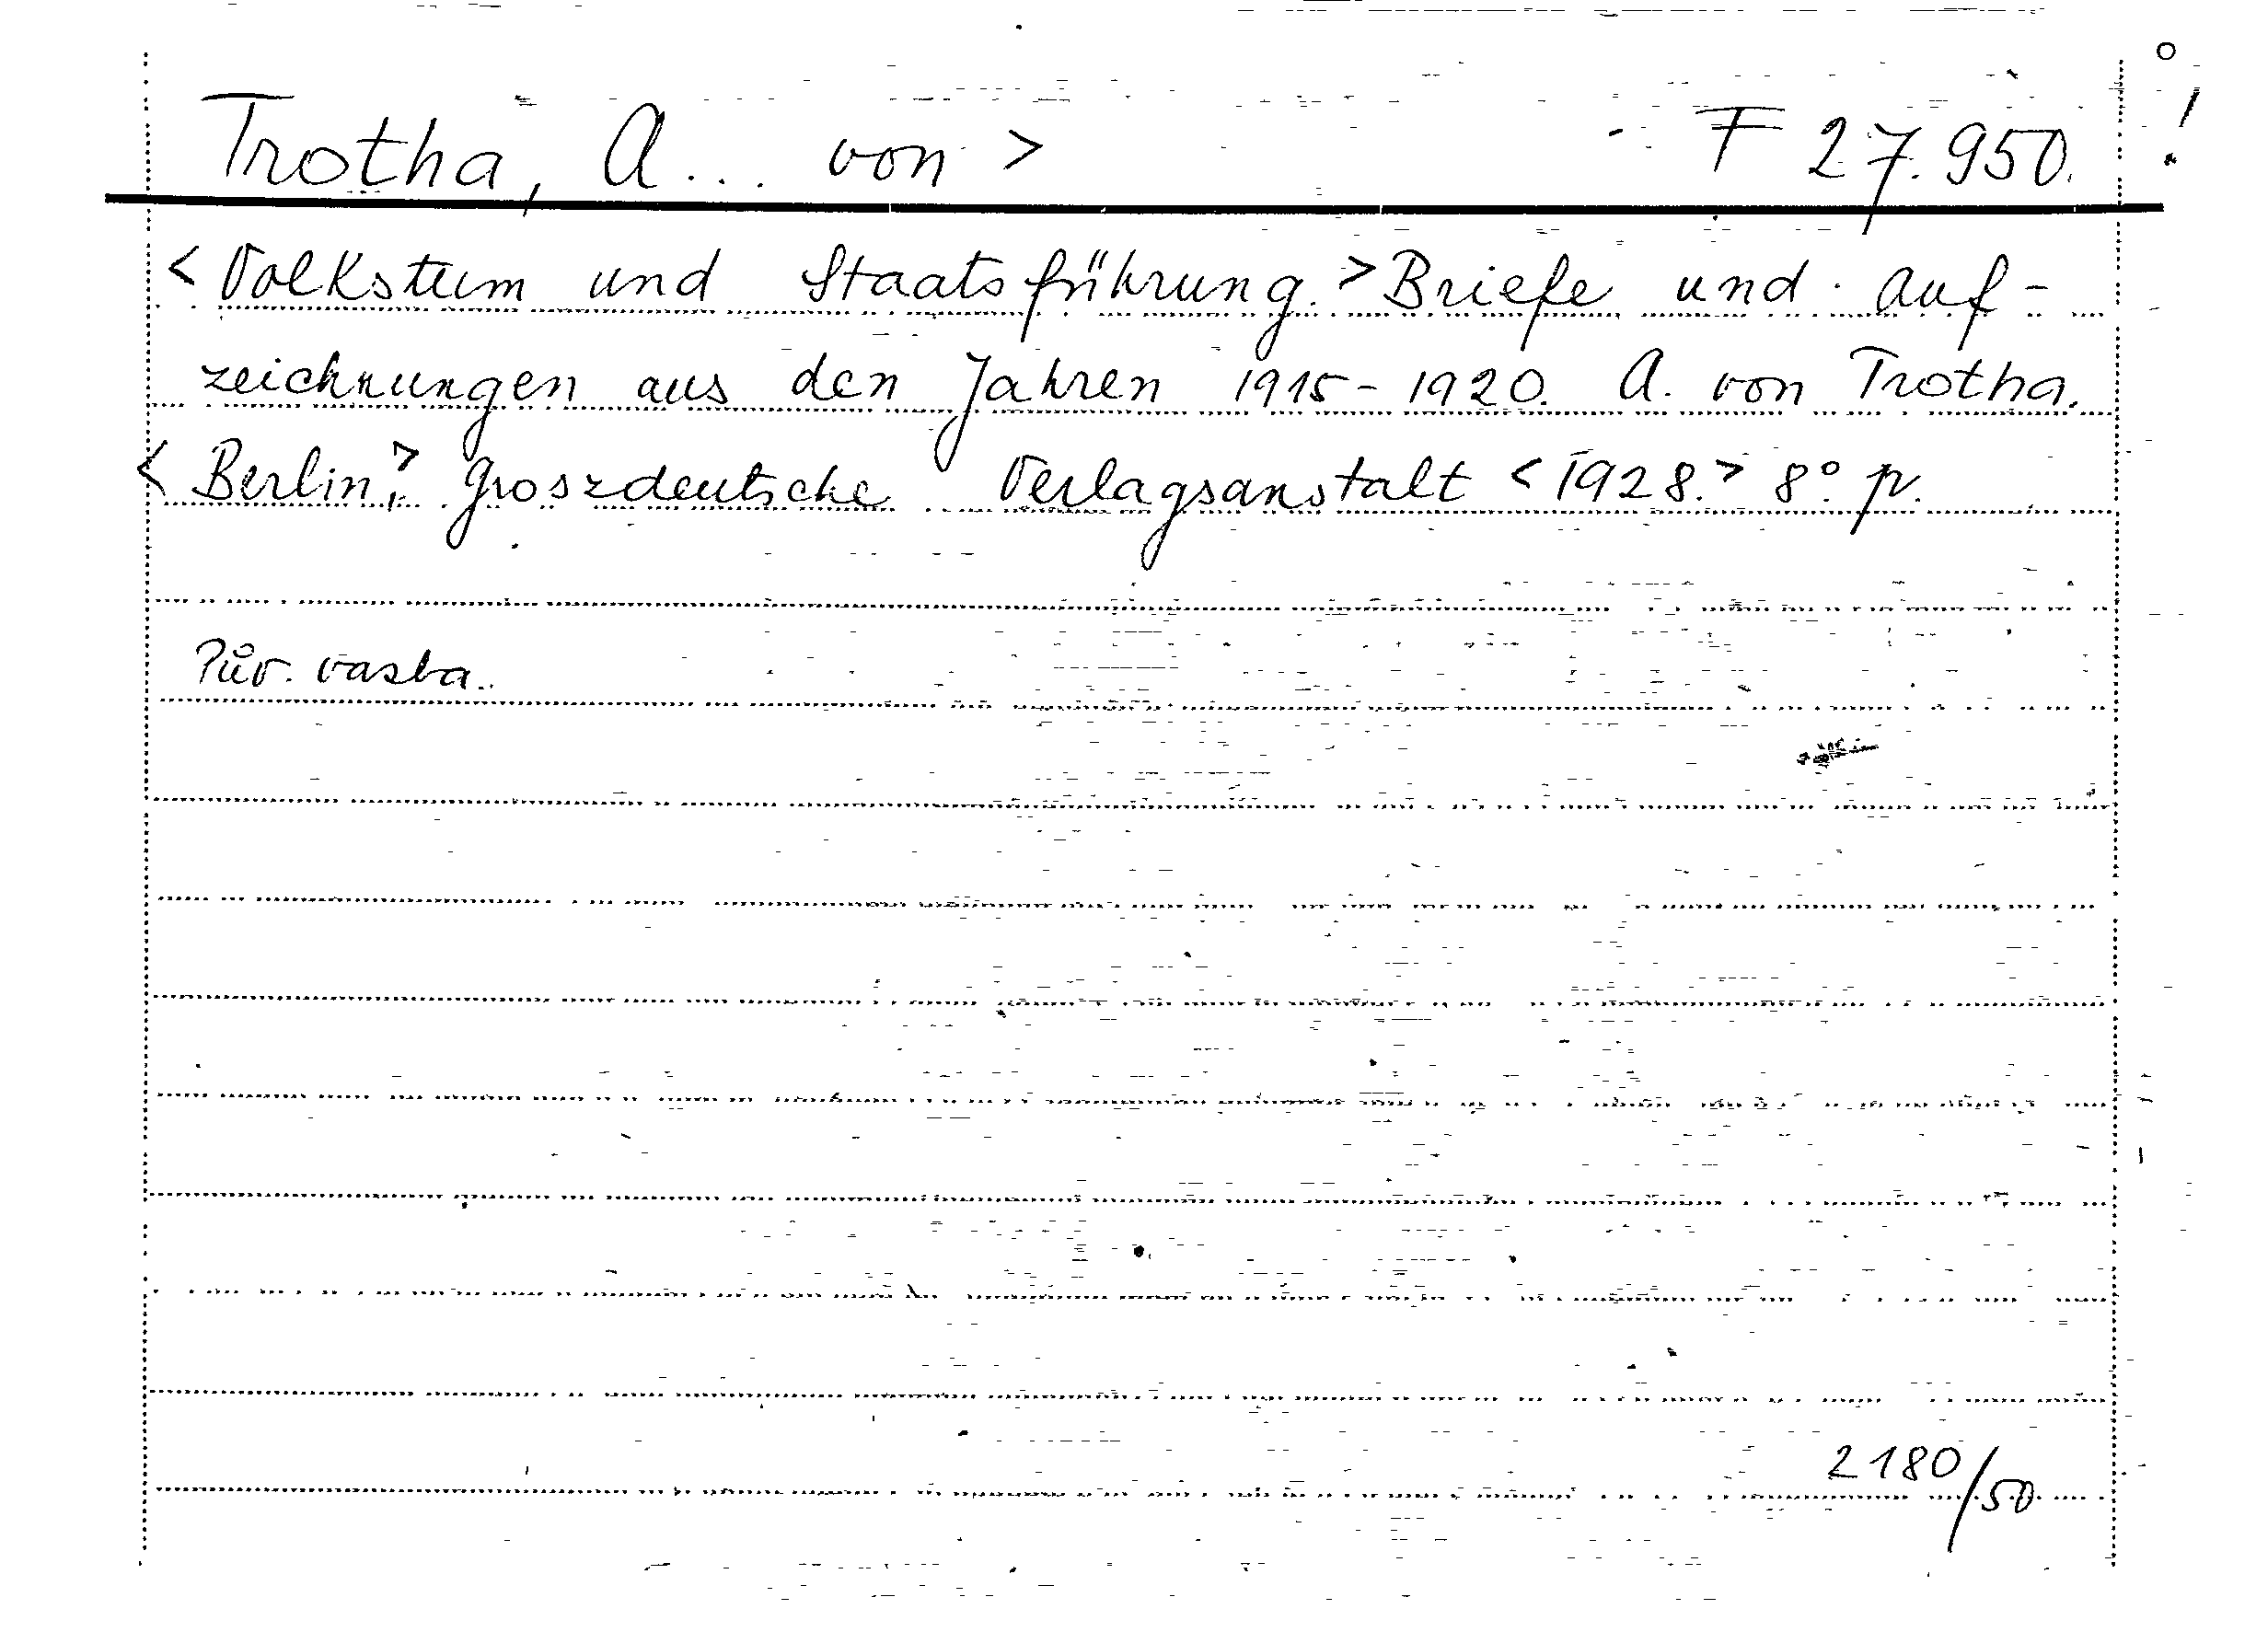 Trotha, A... von > F 27.950. !
< Volkstum und Staatsführung. > Briefe und Auf-
zeichnungen aus den Jahren 1915-1920. A. von Trotha.
< Berlin, > Groszdeutsche Verlagsanstalt < 1928. > 8° p.
Pův. vazba.
2180/50